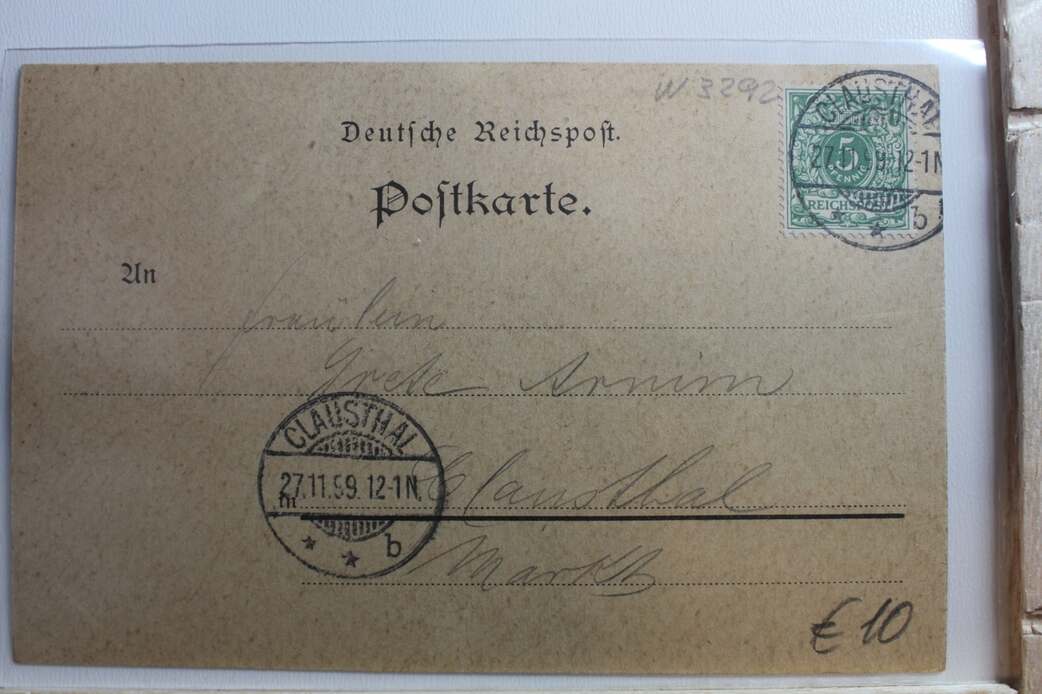 W 3292
Deutsche Reichspost.
Postkarte.
CLAUSTHAL
27.11.99.12-1N
* * b
5
PFENNIG
REICHSPOST
An
Fräulein
Grete Arnim
CLAUSTHAL
27.11.99. 12-1N.
* * b
in
Clausthal
Markt
€ 10